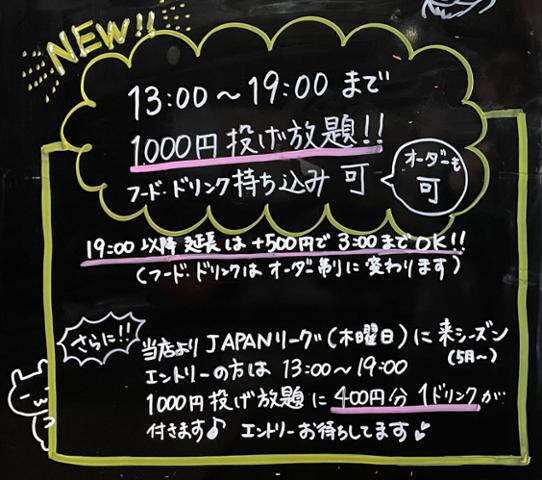 NEW!!
13:00～19:00 まで
1000円 投げ放題!!
フード・ドリンク持ち込み 可
オーダーも
可
19:00 以降 延長は +500円で 3:00までOK!!
(フード・ドリンクは オーダー制に 変わります)
さらに!!
当店より JAPANリーグ(木曜日)に 来シーズン
(5月～)
エントリーの方は 13:00～19:00
1000円 投げ放題に 400円分 1ドリンクが
付きます♪ エントリーお待ちしてます